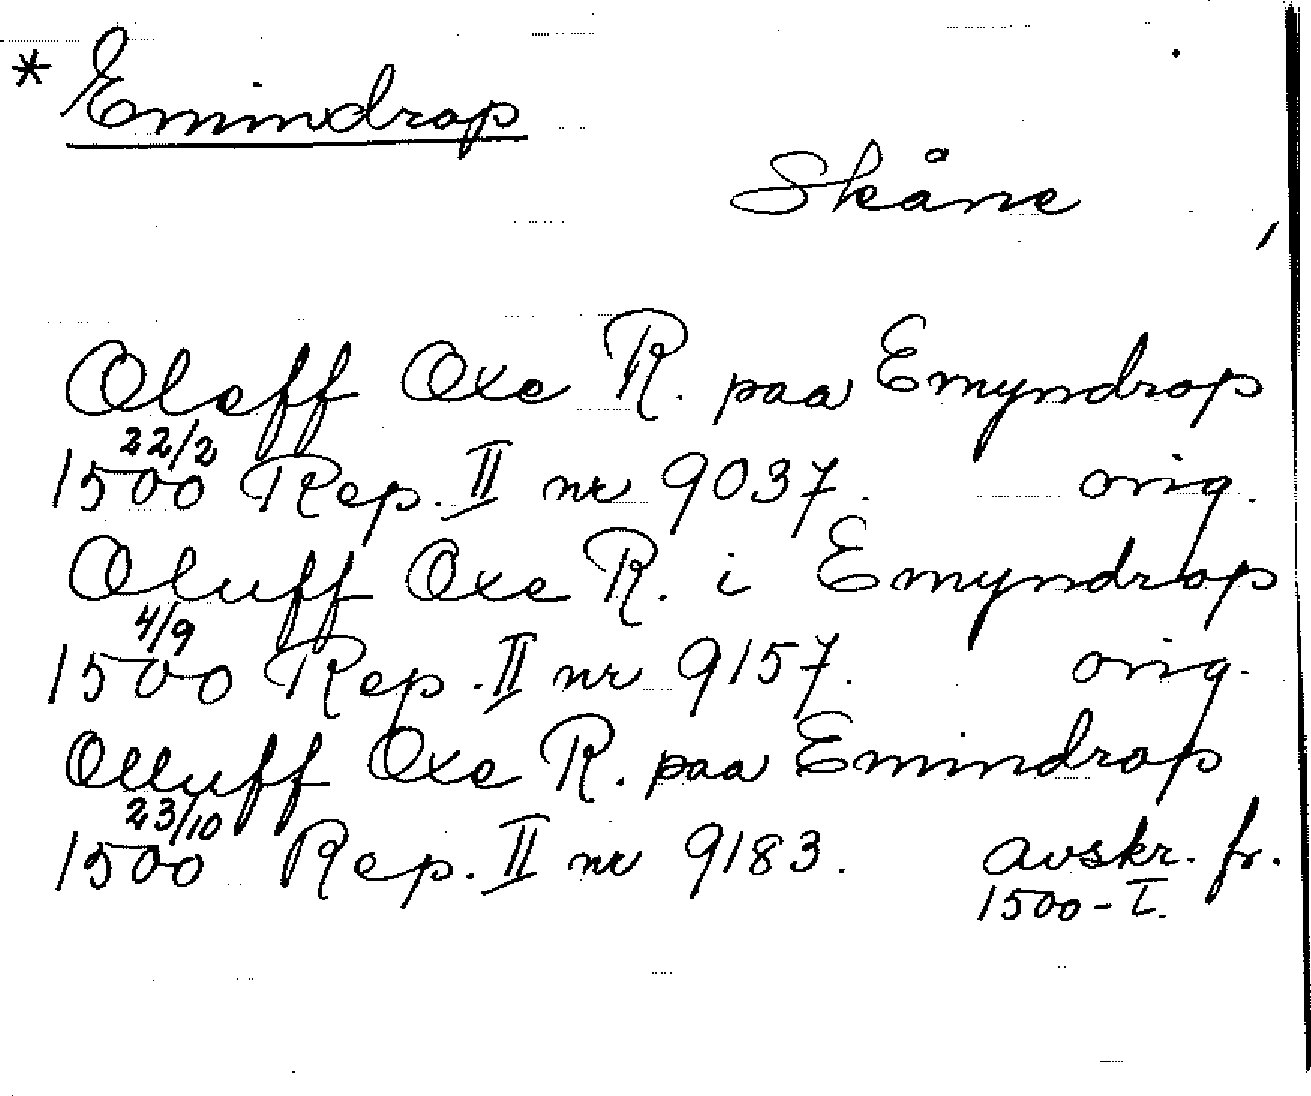 * Emindrop
Skåne
Oleff Oxe R. paa Emyndrop
22/2
1500 Rep. II nr 9037. orig.
Oluff Oxe R. i Emyndrop
4/9
1500 Rep. II nr 9157. orig.
Olluff Oxe R. paa Emindrop
23/10
1500 Rep. II nr 9183. avskr. fr.
1500-t.